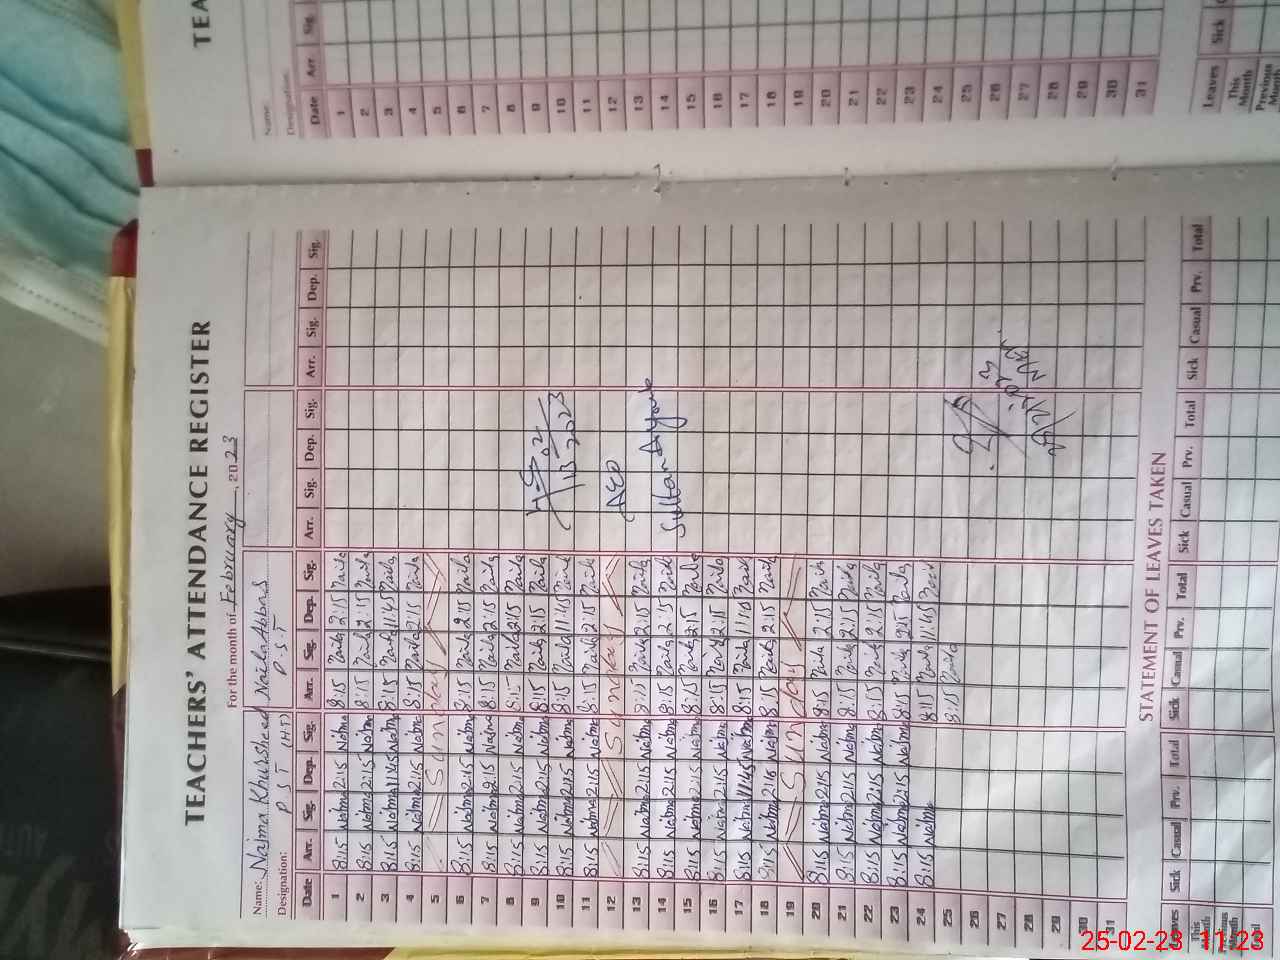 TEACHERS' ATTENDANCE REGISTER
For the month of February, 2023
Name: Najma Khursheed Naila Abbas
Designation: P S T (H.T) P.S.T
Date Arr. Sig. Dep. Sig. Arr. Sig. Dep. Sig. Arr. Sig. Dep. Sig. Arr. Sig. Dep. Sig.
1 8:15 Najma 2:15 Najma 8:15 Naila 2:15 Naila
2 8:15 Najma 2:15 Najma 8:15 Naila 2:15 Naila
3 8:15 Najma 11:45 Najma 8:15 Naila 11:45 Naila
4 8:15 Najma 2:15 Najma 8:15 Naila 2:15 Naila
5 Sunday
6 8:15 Najma 2:15 Najma 8:15 Naila 2:15 Naila
7 8:15 Najma 2:15 Najma 8:15 Naila 2:15 Naila
8 8:15 Najma 2:15 Najma 8:15 Naila 2:15 Naila
9 8:15 Najma 2:15 Najma 8:15 Naila 2:15 Naila
10 8:15 Najma 2:15 Najma 8:15 Naila 11:45 Naila
11 8:15 Najma 2:15 Najma 8:15 Naila 2:15 Naila
12 Sunday
13 8:15 Najma 2:15 Najma 8:15 Naila 2:15 Naila
14 8:15 Najma 2:15 Najma 8:15 Naila 2:15 Naila
15 8:15 Najma 2:15 Najma 8:15 Naila 2:15 Naila
16 8:15 Najma 2:15 Najma 8:15 Naila 2:15 Naila
17 8:15 Najma 11:45 Najma 8:15 Naila Naila
18 8:15 Najma 2:15 Najma 8:15 Naila 2:15 Naila
19 Sunday
20 8:15 Najma 2:15 Najma 8:15 Naila 2:15 Naila
21 8:15 Najma 2:15 Najma 8:15 Naila 2:15 Naila
22 8:15 Najma 2:15 Najma 8:15 Naila 2:15 Naila
23 8:15 Najma 2:15 Najma 8:15 Naila 2:15 Naila
24 8:15 Najma 8:15 Naila 11:45 Naila
25 8:15 Naila
26
27
28
29
30
31
02
13 2023
AEO
Sultan Ayoub
STATEMENT OF LEAVES TAKEN
Leaves Sick Casual Prv. Total Sick Casual Prv. Total Sick Casual Prv. Total Sick Casual Prv. Total
This Month
Previous Month
Total
TEA
Name:
Designation:
Date Arr. Sig.
1
2
3
4
5
6
7
8
9
10
11
12
13
14
15
16
17
18
19
20
21
22
23
24
25
26
27
28
29
30
31
Leaves Sick
This Month
Previous Month
25-02-23 11:23